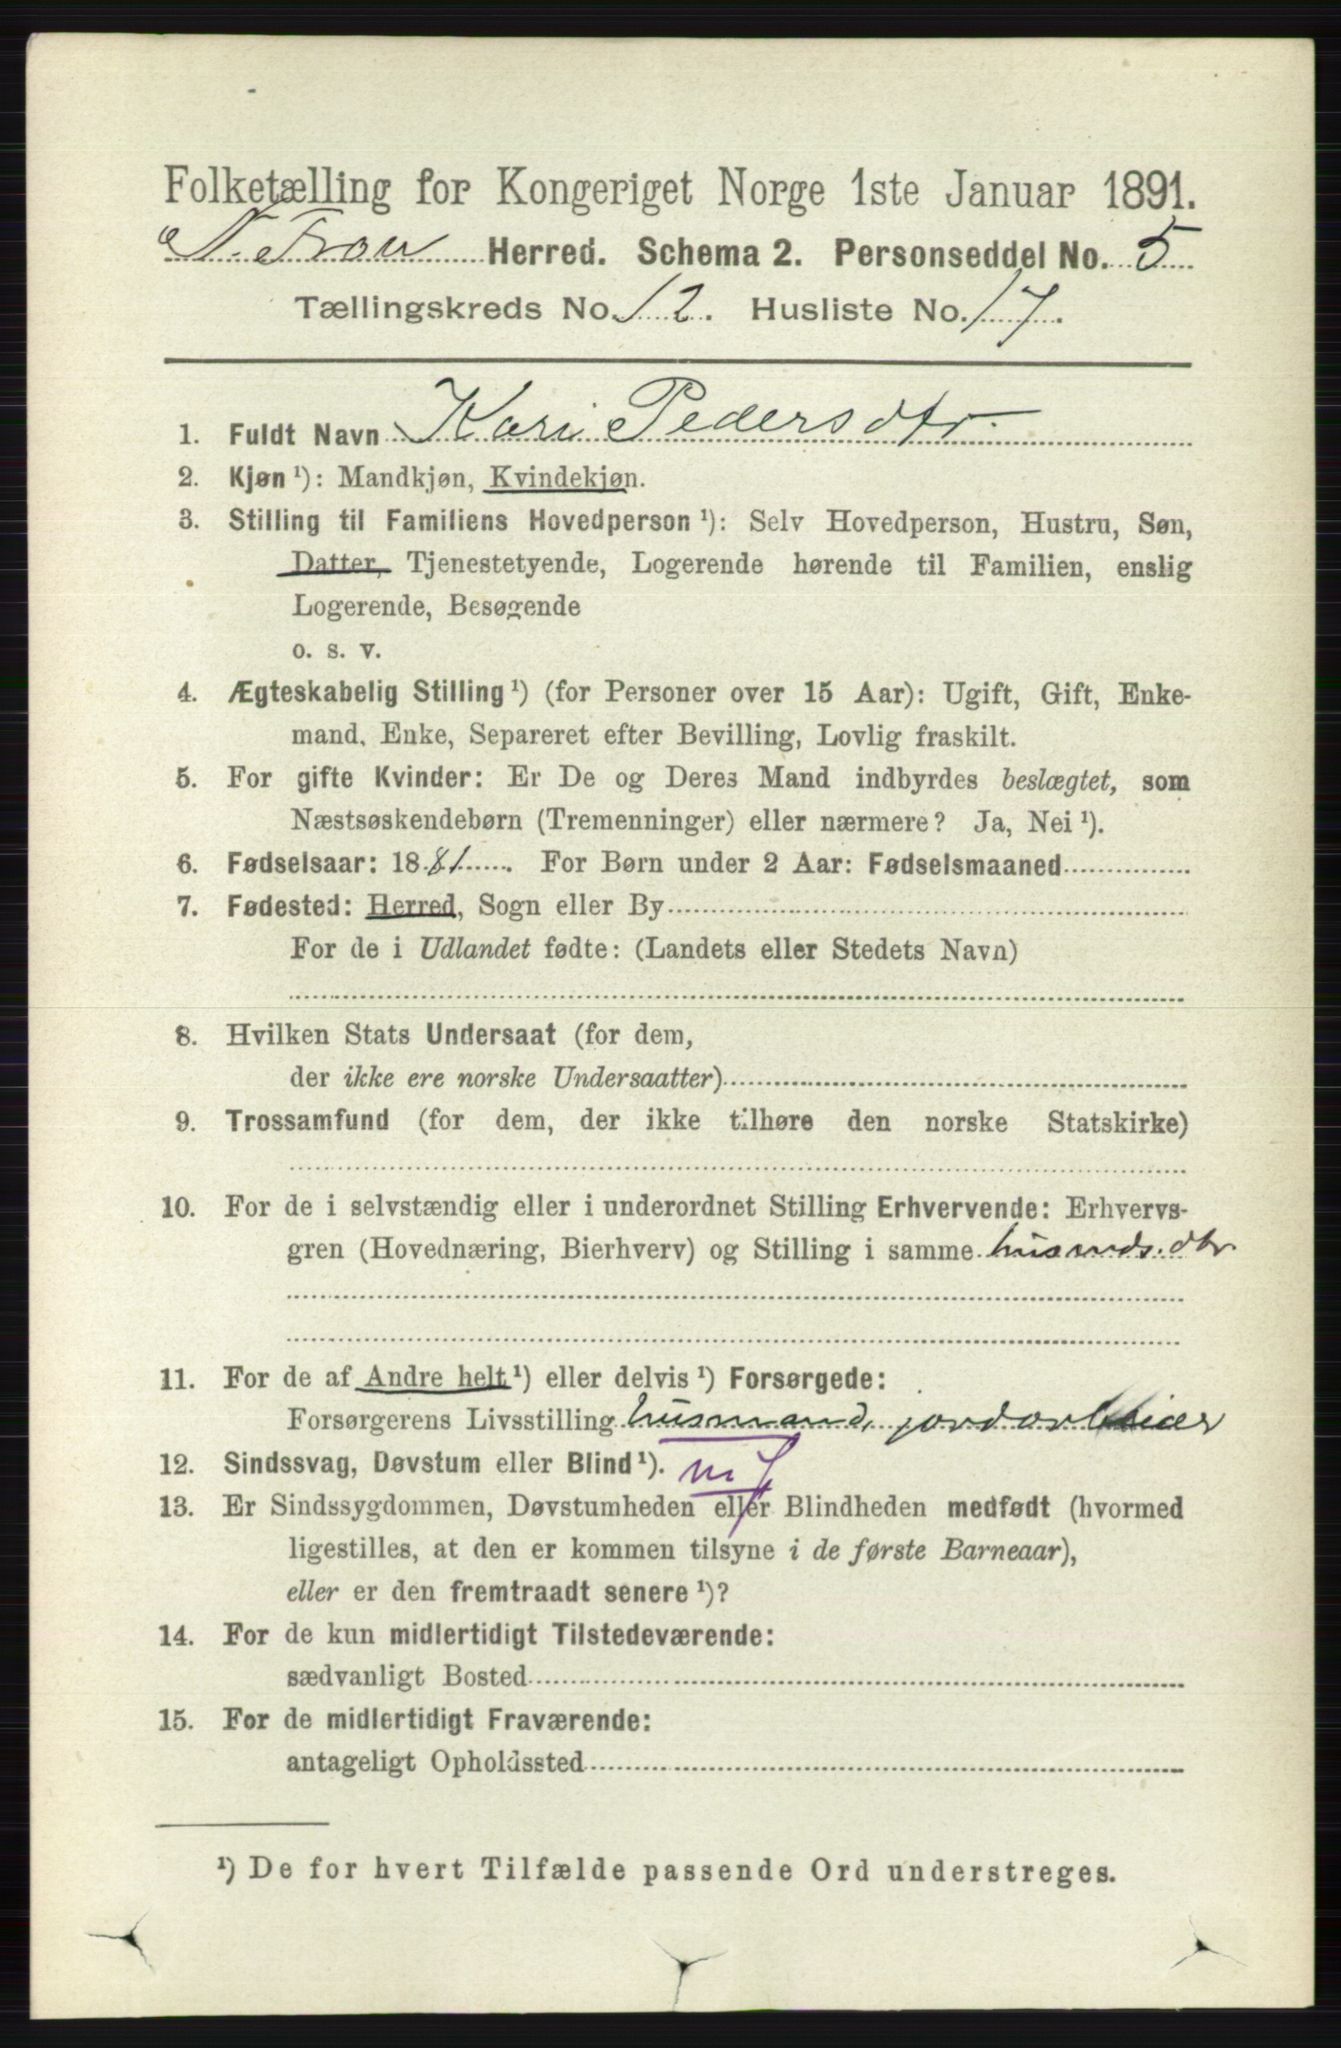 Folketælling for Kongeriget Norge 1ste Januar 1891.
N. Fron Herred. Schema 2. Personseddel No. 5
Tællingskreds No. 12. Husliste No. 17.
1. Fuldt Navn Kari Pedersdtr.
2. Kjøn ¹): Mandkjøn, Kvindekjøn.
3. Stilling til Familiens Hovedperson ¹): Selv Hovedperson, Hustru, Søn,
Datter, Tjenestetyende, Logerende hørende til Familien, enslig
Logerende, Besøgende
o. s. v.
4. Ægteskabelig Stilling ¹) (for Personer over 15 Aar): Ugift, Gift, Enke-
mand, Enke, Separeret efter Bevilling, Lovlig fraskilt.
5. For gifte Kvinder: Er De og Deres Mand indbyrdes beslægtet, som
Næstsøskendebørn (Tremenninger) eller nærmere? Ja, Nei ¹).
6. Fødselsaar: 1881. For Børn under 2 Aar: Fødselsmaaned
7. Fødested: Herred, Sogn eller By
For de i Udlandet fødte: (Landets eller Stedets Navn)
8. Hvilken Stats Undersaat (for dem,
der ikke ere norske Undersaatter)
9. Trossamfund (for dem, der ikke tilhøre den norske Statskirke)
10. For de i selvstændig eller i underordnet Stilling Erhvervende: Erhvervs-
gren (Hovednæring, Bierhverv) og Stilling i samme husmds. dtr
11. For de af Andre helt ¹) eller delvis ¹) Forsørgede:
Forsørgerens Livsstilling husmand, jordarbeider
12. Sindssvag, Døvstum eller Blind ¹). m J
13. Er Sindssygdommen, Døvstumheden eller Blindheden medfødt (hvormed
ligestilles, at den er kommen tilsyne i de første Barneaar),
eller er den fremtraadt senere ¹)?
14. For de kun midlertidigt Tilstedeværende:
sædvanligt Bosted
15. For de midlertidigt Fraværende:
antageligt Opholdssted
¹) De for hvert Tilfælde passende Ord understreges.